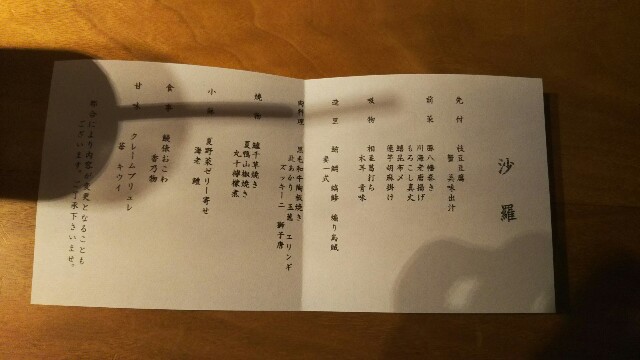 沙羅
先付 枝豆豆腐
蟹 美味出汁
前菜 鰻八幡巻き
川海老唐揚げ
もろこし真丈
蛸昆布〆
蓮芋胡麻掛け
吸物
木耳 青味
造里
妻一式
肉料理 黒毛和牛陶板焼き
北あかり 玉葱 エリンギ
ズッキーニ 獅子唐
焼物 鱸千草焼き
夏鴨山椒焼き
丸十檸檬煮
小鉢 夏野菜ゼリー寄せ
海老 鱧
食事 鰻俵おこわ
香乃物
甘味 クレームブリュレ
苺 キウイ
都合により内容が変更となることも
ございます。ご了承下さいませ。